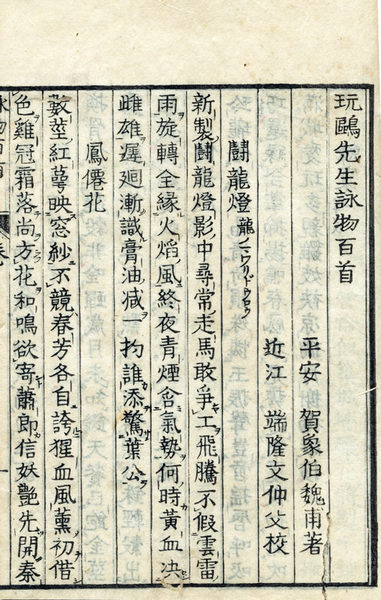 玩鷗先生詠物百首
平安 賀象伯魏甫著
近江 端隆文仲父校
鬪龍燈
新製鬪龍燈影中尋常走馬敢爭工飛騰不假雲雷
雨旋轉全緣火焰風終夜青煙含氣勢何時黃血决
雌雄遲廻漸識膏油減一扚誰添驚葉公
鳳僊花
數莖紅萼映窓紗不競春芳各自誇猩血風薰初借
色雞冠霜落尚方花和鳴欲寄蕭郎信妖艷先開秦
詠物百首 卷 一